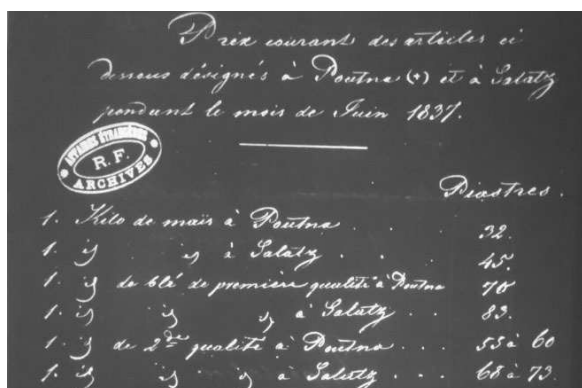 Prix courant des articles ci
dessous désignés à Poutna (+) et à Galatz
pendant le mois de Juin 1837.
AFFAIRES ÉTRANGÈRES
R. F.
ARCHIVES
Piastres.
1. Kilo de maïs à Poutna . . . 32.
1. id id à Galatz . . . 45.
1. id de blé de première qualité à Poutna 70
1. id id id à Galatz . . 83.
1. id de 2de qualité à Poutna . . . 55 à 60
1. id id id à Galatz . . . 68 à 73.